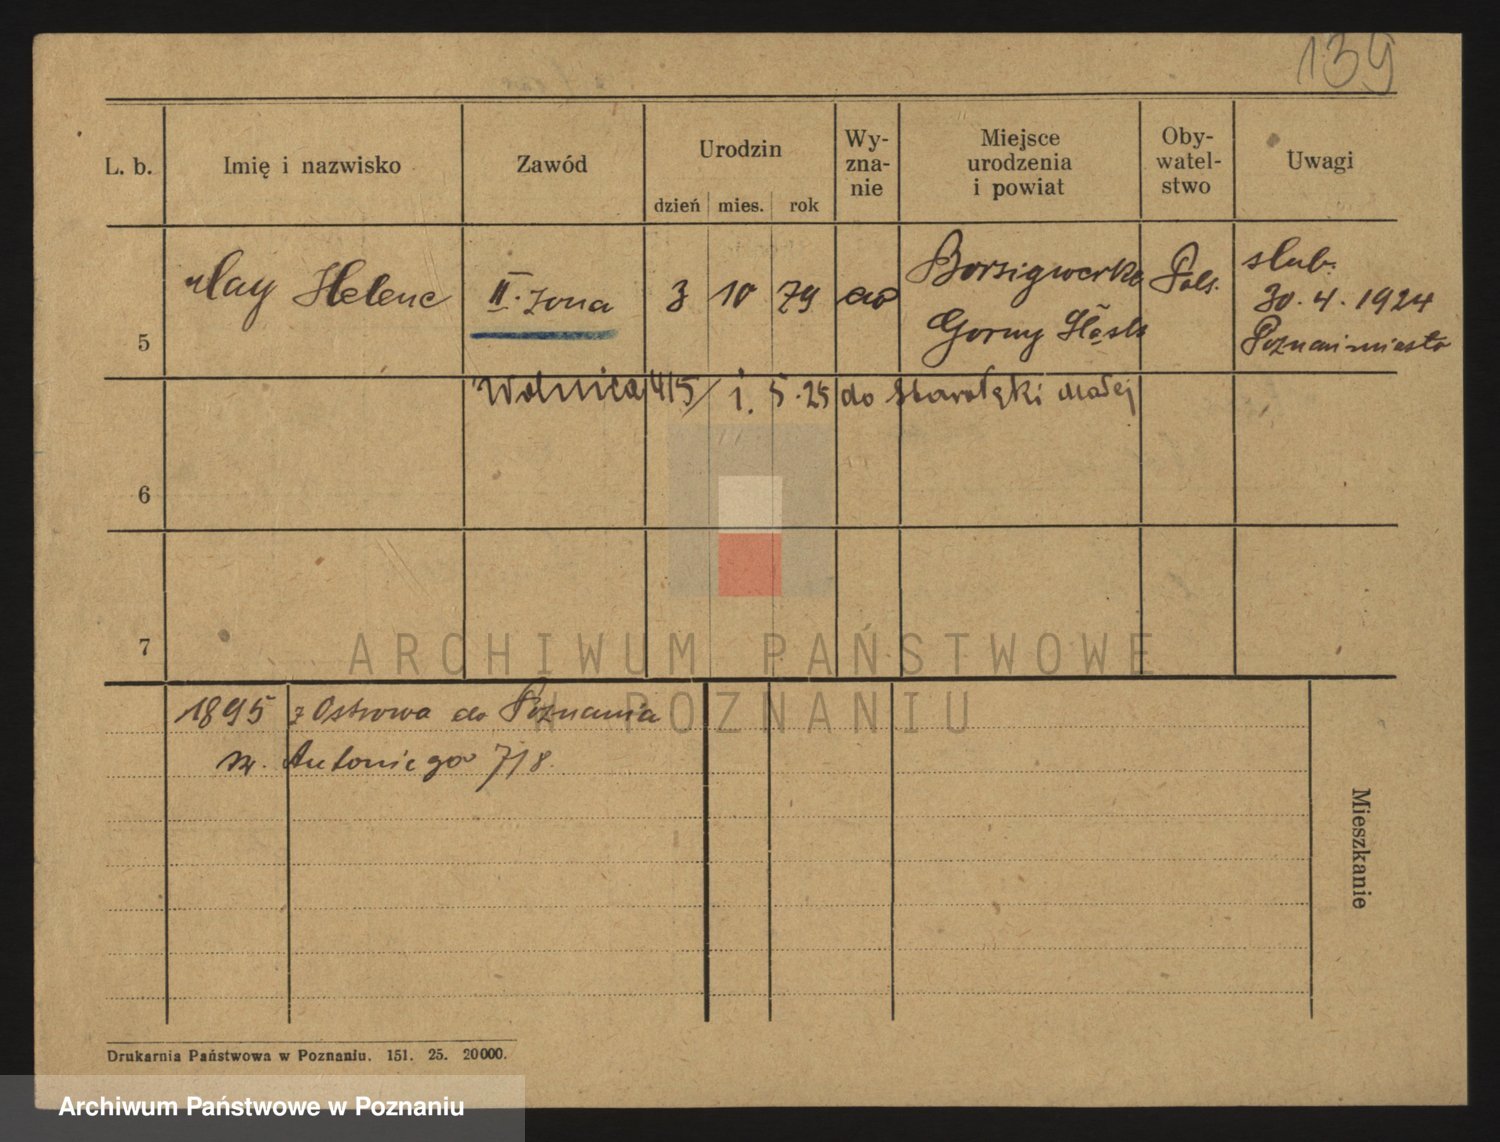 139
L. b.
Imię i nazwisko
Zawód
Urodzin
dzień mies. rok
Wy-
zna-
nie
Miejsce
urodzenia
i powiat
Oby-
watel-
stwo
Uwagi
5
May Helene
II. żona
3 10 79
Borsigwerke
Gorny Śląsk
Pols.
slub.
30. 4. 1924
Poznań miasto
Wolnica 4/5/ 1. 5. 25 do Starołęki małej
6
7
ARCHIWUM PAŃSTWOWE
W POZNANIU
1895 z Ostrowa do Poznania
św. Antoniego 7/8.
Mieszkanie
Drukarnia Państwowa w Poznaniu. 151. 25. 20000.
Archiwum Państwowe w Poznaniu